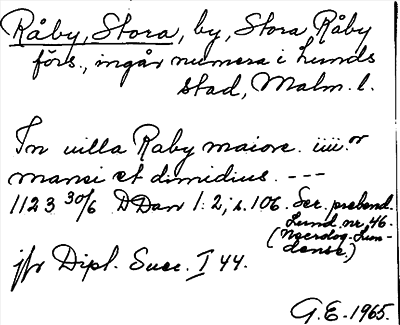 Råby, Stora, by, Stora Råby
förs., ingår numera i Lunds
stad, Malm. l.
In villa Raby maiore. iiii.or
mansi et dimidius. ---
1123 30/6 DDan 1:2, s. 106. Scr. prebend.
Lund. nr 46.
(Necrolog. Lun-
dense.)
jfr Dipl. Suec. I 44.
G.E. 1965.